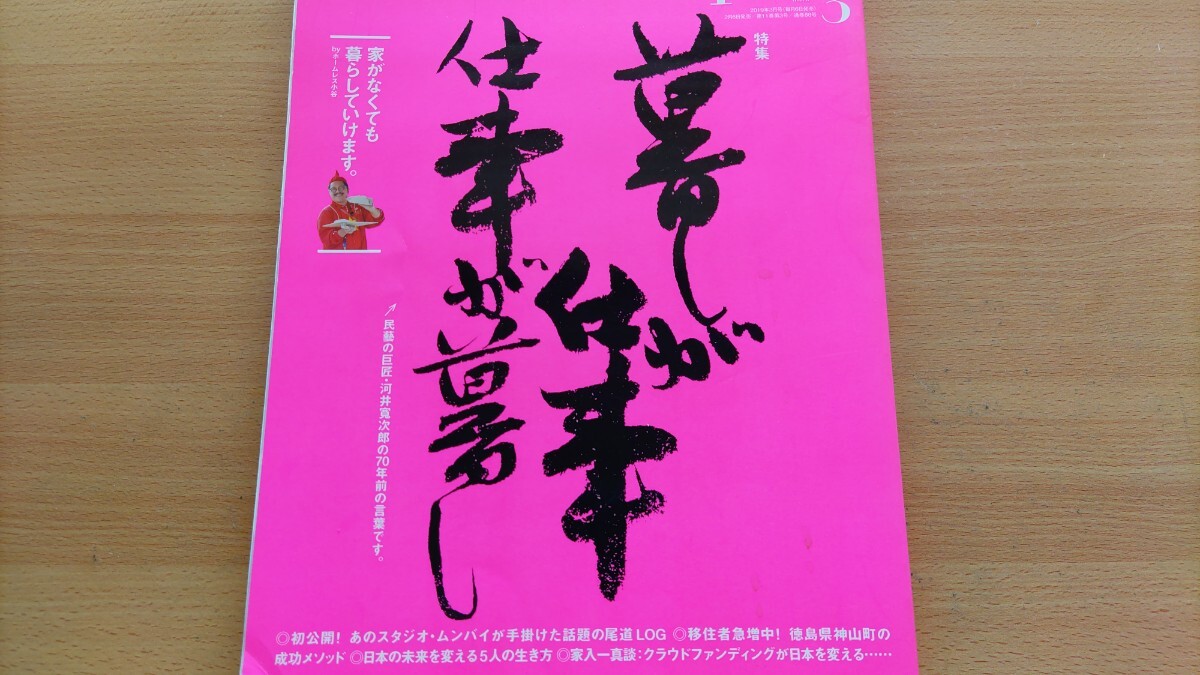 3
特集
暮しが
仕事
仕事が暮し
家がなくても
暮らしていけます。
byホームレス小谷
民藝の巨匠・河井寬次郎の70年前の言葉です。
◎初公開！あのスタジオ・ムンバイが手掛けた話題の尾道LOG ◎移住者急増中！徳島県神山町の
成功メソッド ◎日本の未来を変える5人の生き方 ◎家入一真談：クラウドファンディングが日本を変える……